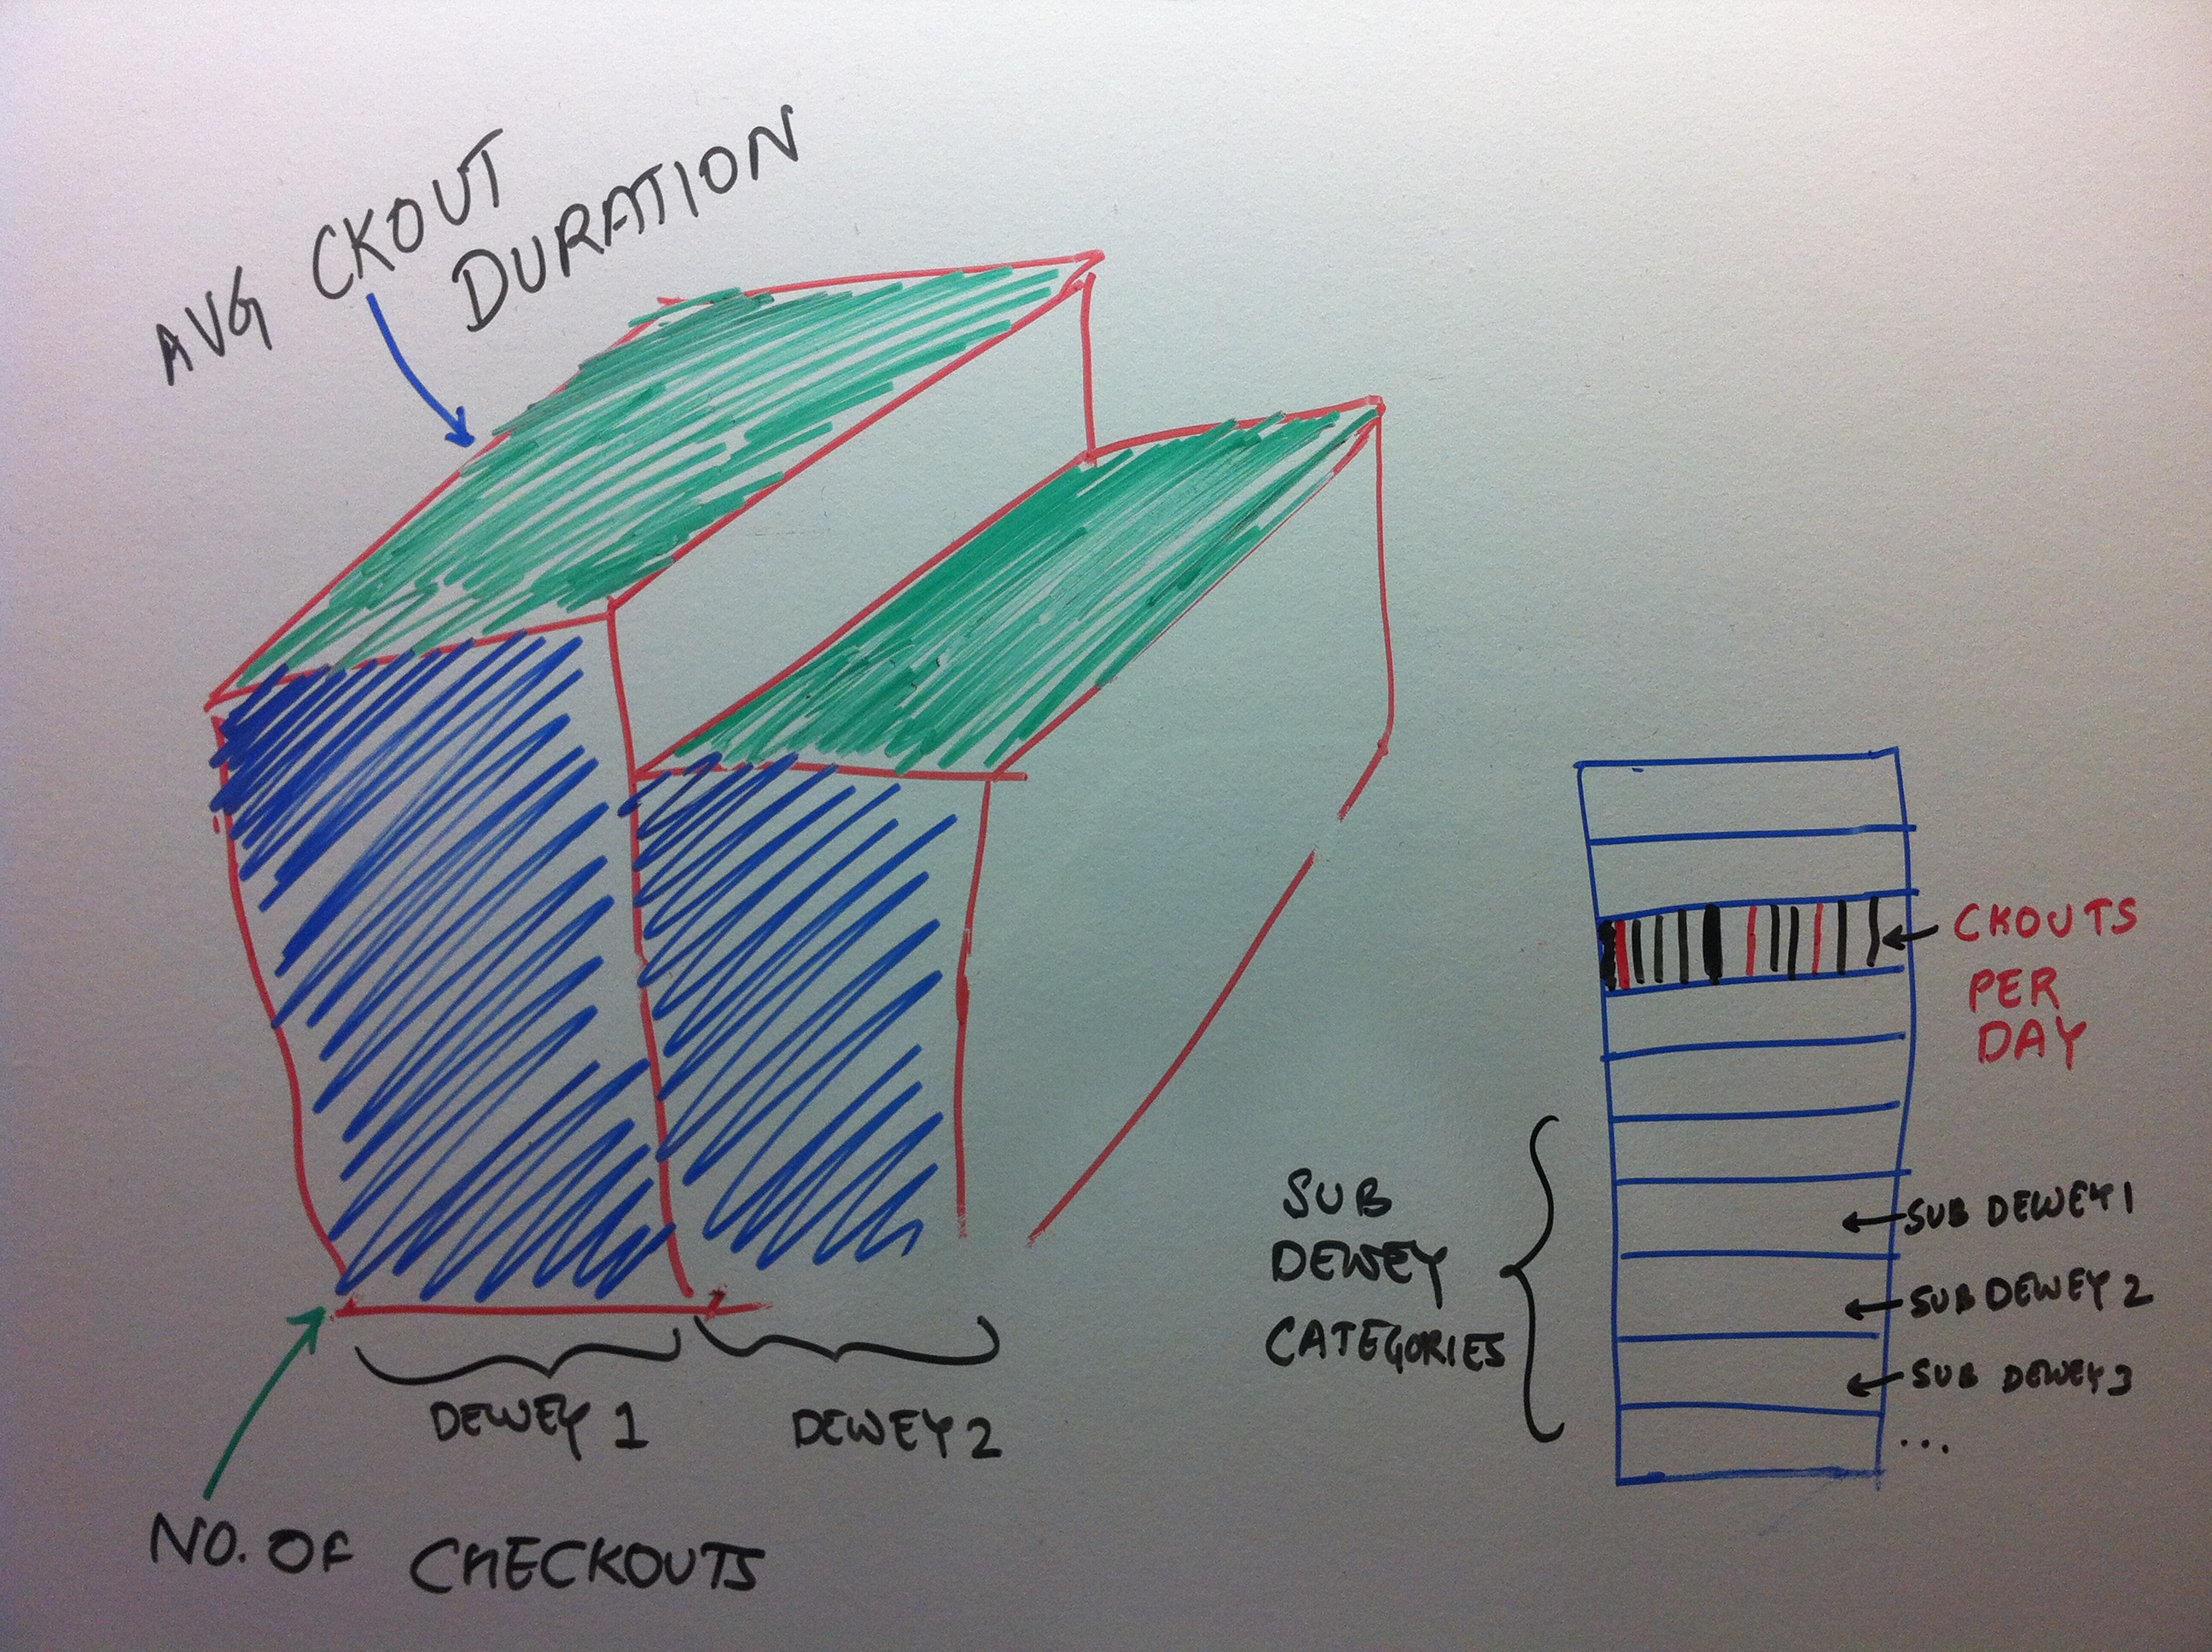 AVG CKOUT
DURATION
CKOUTS
PER
DAY
SUB
DEWEY
CATEGORIES
SUB DEWEY 1
SUB DEWEY 2
SUB DEWEY 3
...
DEWEY 1
DEWEY 2
NO. OF CHECKOUTS